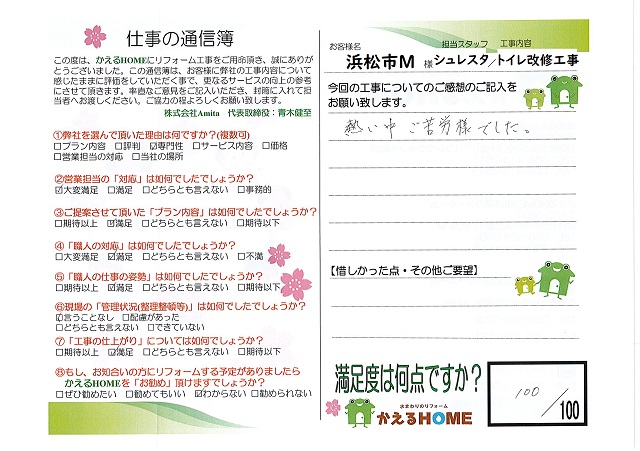 仕事の通信簿
この度は、かえるHOMEにリフォーム工事をご用命頂き、誠にありが
とうございました。この通信簿は、お客様に弊社の工事内容について
感じたままに評価をしていただく事で、更なるサービスの向上の参考
にさせて頂きます。率直なご意見をご記入いただき、封筒に入れて担
当者へお渡しください。ご協力の程よろしくお願い致します。
株式会社Amita 代表取締役：青木健至
①弊社を選んで頂いた理由は何ですか？(複数可)
□プラン内容 □評判 ☑専門性 □サービス内容 □価格
□営業担当の対応 □当社の場所
②営業担当の「対応」は如何でしたでしょうか？
☑大変満足 □満足 □どちらとも言えない □事務的
③ご提案させて頂いた「プラン内容」は如何でしたでしょうか？
□期待以上 ☑満足 □どちらとも言えない □期待以下
④「職人の対応」は如何でしたでしょうか？
□大変満足 ☑満足 □どちらとも言えない □不満
⑤「職人の仕事の姿勢」は如何でしたでしょうか？
□期待以上 ☑満足 □どちらとも言えない □期待以下
⑥現場の「管理状況(整理整頓等)」は如何でしたでしょうか？
☑言うことなし □配慮があった
□どちらとも言えない □できていない
⑦「工事の仕上がり」については如何でしょうか？
□期待以上 ☑満足 □どちらとも言えない □期待以下
⑧もし、お知合いの方にリフォームする予定がありましたら
かえるHOMEを「お勧め」頂けますでしょうか？
□ぜひ勧めたい □勧めてもいい ☑わからない □勧められない
お客様名 担当スタッフ 工事内容
浜松市M 様 シュレスタ／トイレ改修工事
今回の工事についてのご感想のご記入を
お願い致します。
熱い中 ご苦労様でした。
【惜しかった点・その他ご要望】
満足度は何点ですか？
100／100
水まわりのリフォーム
かえるHOME